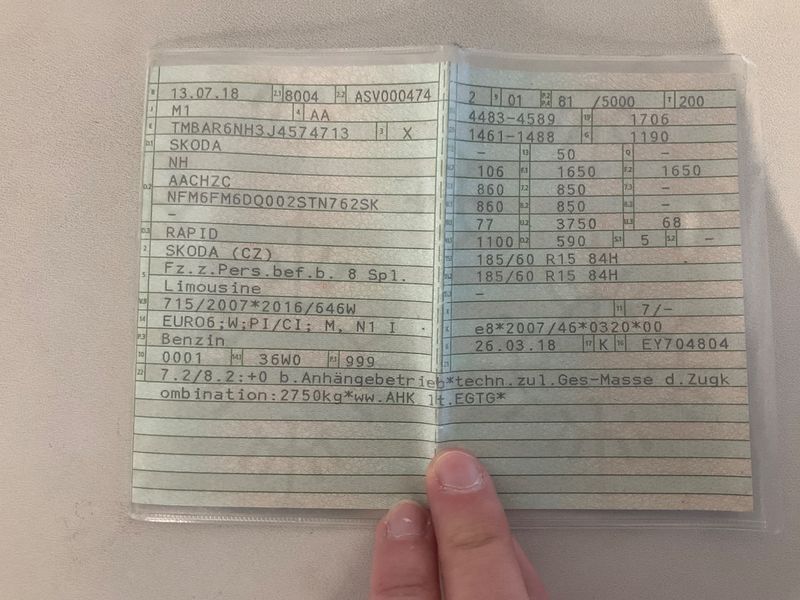 B 13.07.18 2.1 8004 2.2 ASV000474
J M1 4 AA
E TMBAR6NH3J4574713 3 X
D.1 SKODA
NH
D.2 AACHZC
NFM6FM6DQ002STN762SK
–
D.3 RAPID
2 SKODA (CZ)
5 Fz.z.Pers.bef.b. 8 Spl.
Limousine
V.9 715/2007*2016/646W
14 EURO6;W;PI/CI; M, N1 I
P.3 Benzin
10 0001 14.1 36W0 P.1 999
22 7.2/8.2:+0 b.Anhängebetrieb*techn.zul.Ges-Masse d.Zugk
ombination:2750kg*ww.AHK lt.EGTG*
2 9 01 P.2 P.4 81 /5000 T 200
4483-4589 19 1706
1461-1488 G 1190
– 13 50 Q –
106 F.1 1650 F.2 1650
860 7.2 850 7.3 –
860 8.2 850 8.3 –
77 U.2 3750 U.3 68
1100 O.2 590 S.1 5 S.2 –
185/60 R15 84H
185/60 R15 84H
–
11 7/–
K e8*2007/46*0320*00
6 26.03.18 17 K 16 EY704804